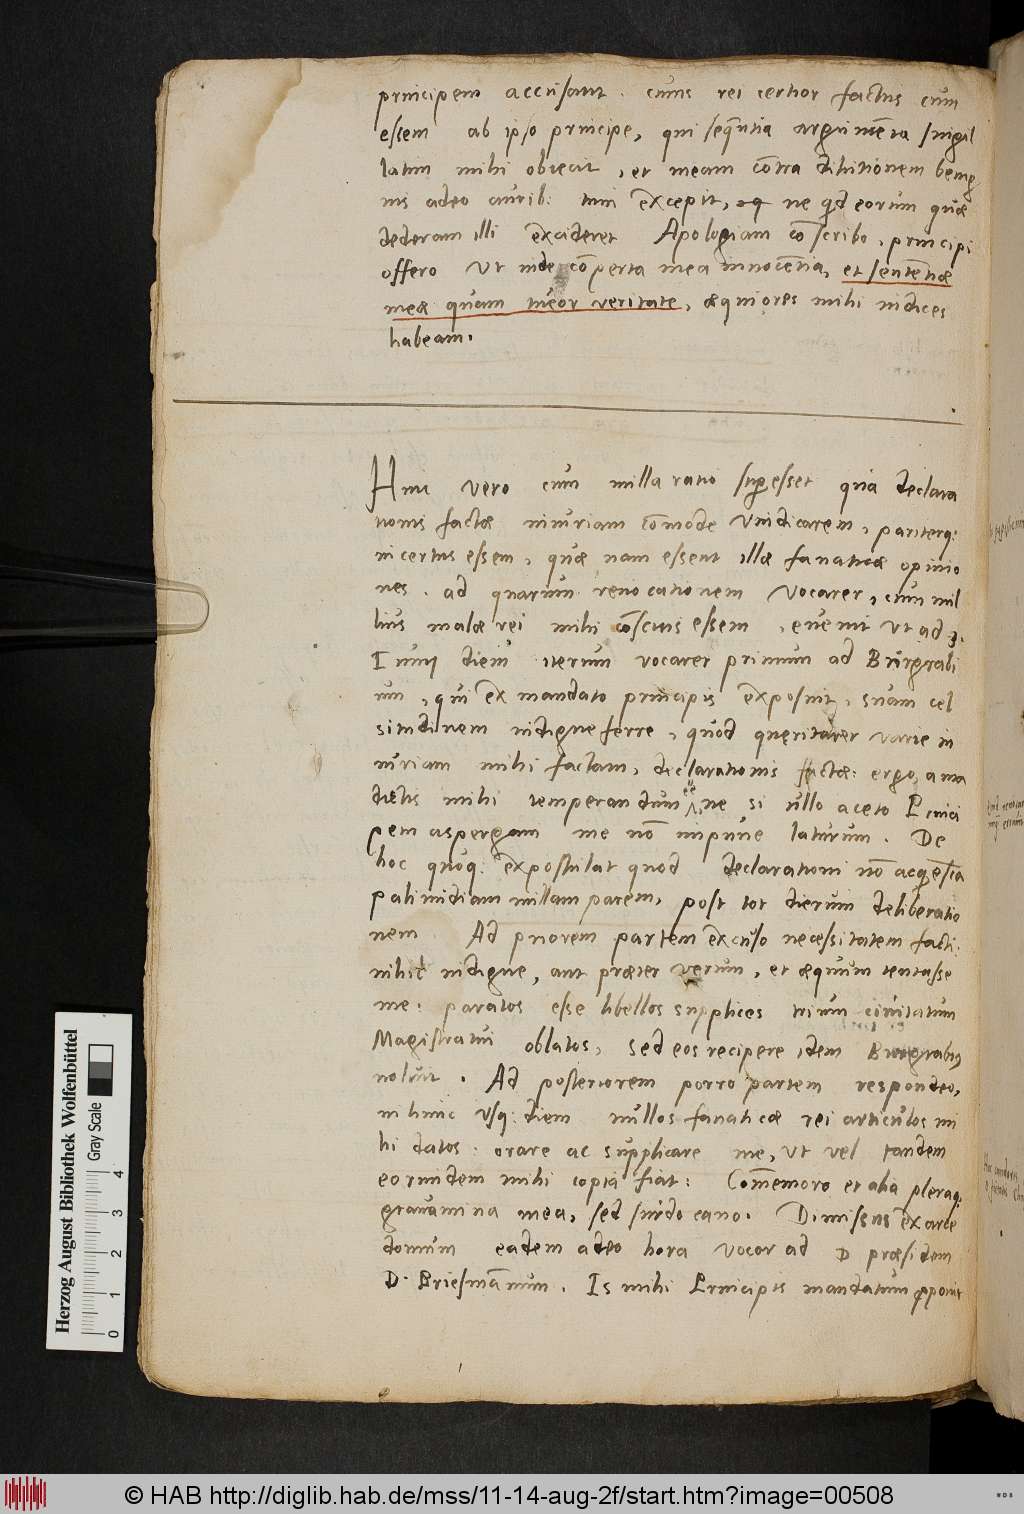 principem accusant. cuius rei certior factus cum
essem ab ipso principe, qui sequētia argumēta singil
latim mihi obiecit, et meam cōtra dihitionem benig
nis adeo aurib: tum excepit, ne qd eorum quæ
dederam illi excideret Apologiam cōscribo, principi
offero Ut inde cōperta mea innocētia, et sentētiæ
meæ quam tueor veritate, æquiores mihi iudices
habeam.
Hinc vero cum nulla ratio supesset qua declara
tionis factæ iniuriam cōmode vindicarem, pariterq:
incertus essem, quæ nam essent illæ fanaticæ opinio
nes. ad quarum reuocationem vocarer, cum nul
lius malæ rei mihi cōscius essem, euenit ut ad 3.
Iunij diem iterum vocarer primum ad Burgrabi
um, qui ex mandato principis exposuit, suam cel
situdinem indigne ferre, quod queritarer varie in
iuriam mihi factam, declarationis factæ: ergo, a ma
dictis mihi temperandum eē, ne si ullo aceto Princi
pem aspergam me nō impune laturum. De
hoc quoq: expostulat quod declarationi nō acquiescā
palinidiam nullam parem, post tot dierum deliberatio
nem Ad priorem partem excuso necessitatem facti:
nihil indigne, aut præter verum, et æquum tentasse
me: paratos esse libellos supplices trium ciuitatum
Magistratui oblatos, sed eos recipere idem Burgrabius
noluit. Ad posteriorem porro partem respondeo,
in hunc usq: diem nullos fanaticæ rei articulos mi
hi datos: orare ac supplicare me, ut vel tandem
eorundem mihi copia fiat: Cōmemoro et alia pleraq:
grauamina mea, sed surdo cano. Dimissus ex arce
domum eadem adeo hora vocor ad D præsidem
D. Briesmānum. Is mihi Principis mandatum pponit
Herzog August Bibliothek Wolfenbüttel
Gray Scale
0 1 2 3 4
© HAB http://diglib.hab.de/mss/11-14-aug-2f/start.htm?image=00508